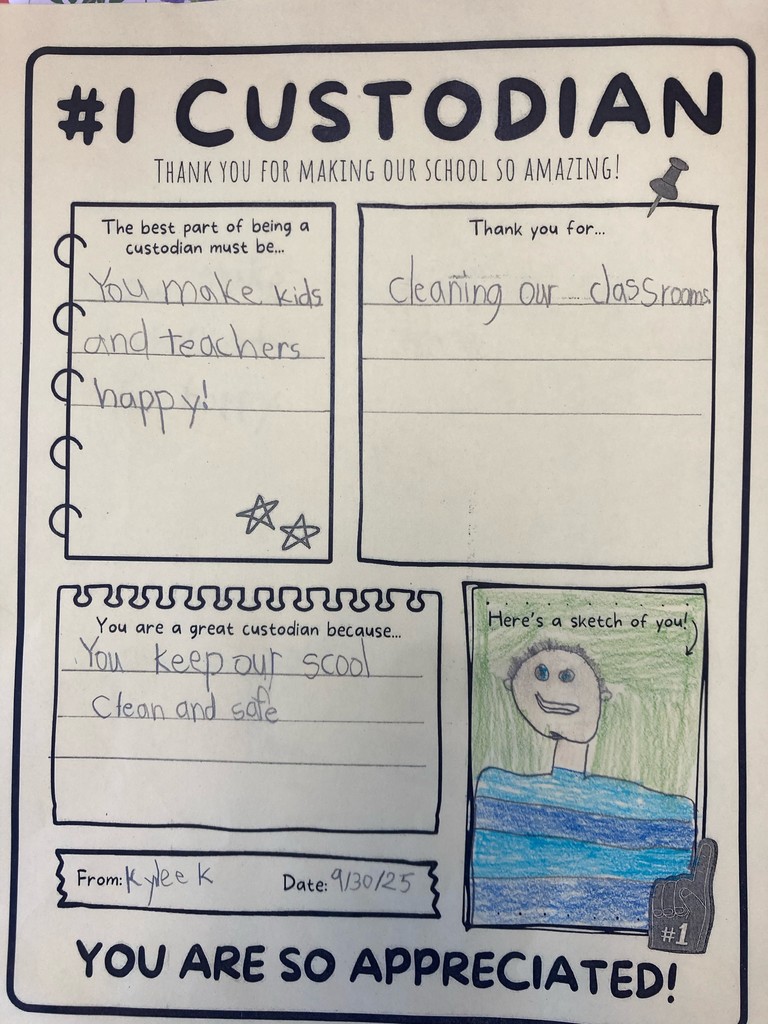 #1 CUSTODIAN
THANK YOU FOR MAKING OUR SCHOOL SO AMAZING!
The best part of being a
custodian must be...
You make kids
and teachers
happy!
Thank you for...
cleaning our classrooms.
You are a great custodian because...
You keep our scool
Clean and safe
Here's a sketch of you!
From: Kylee K
Date: 9/30/25
#1
YOU ARE SO APPRECIATED!